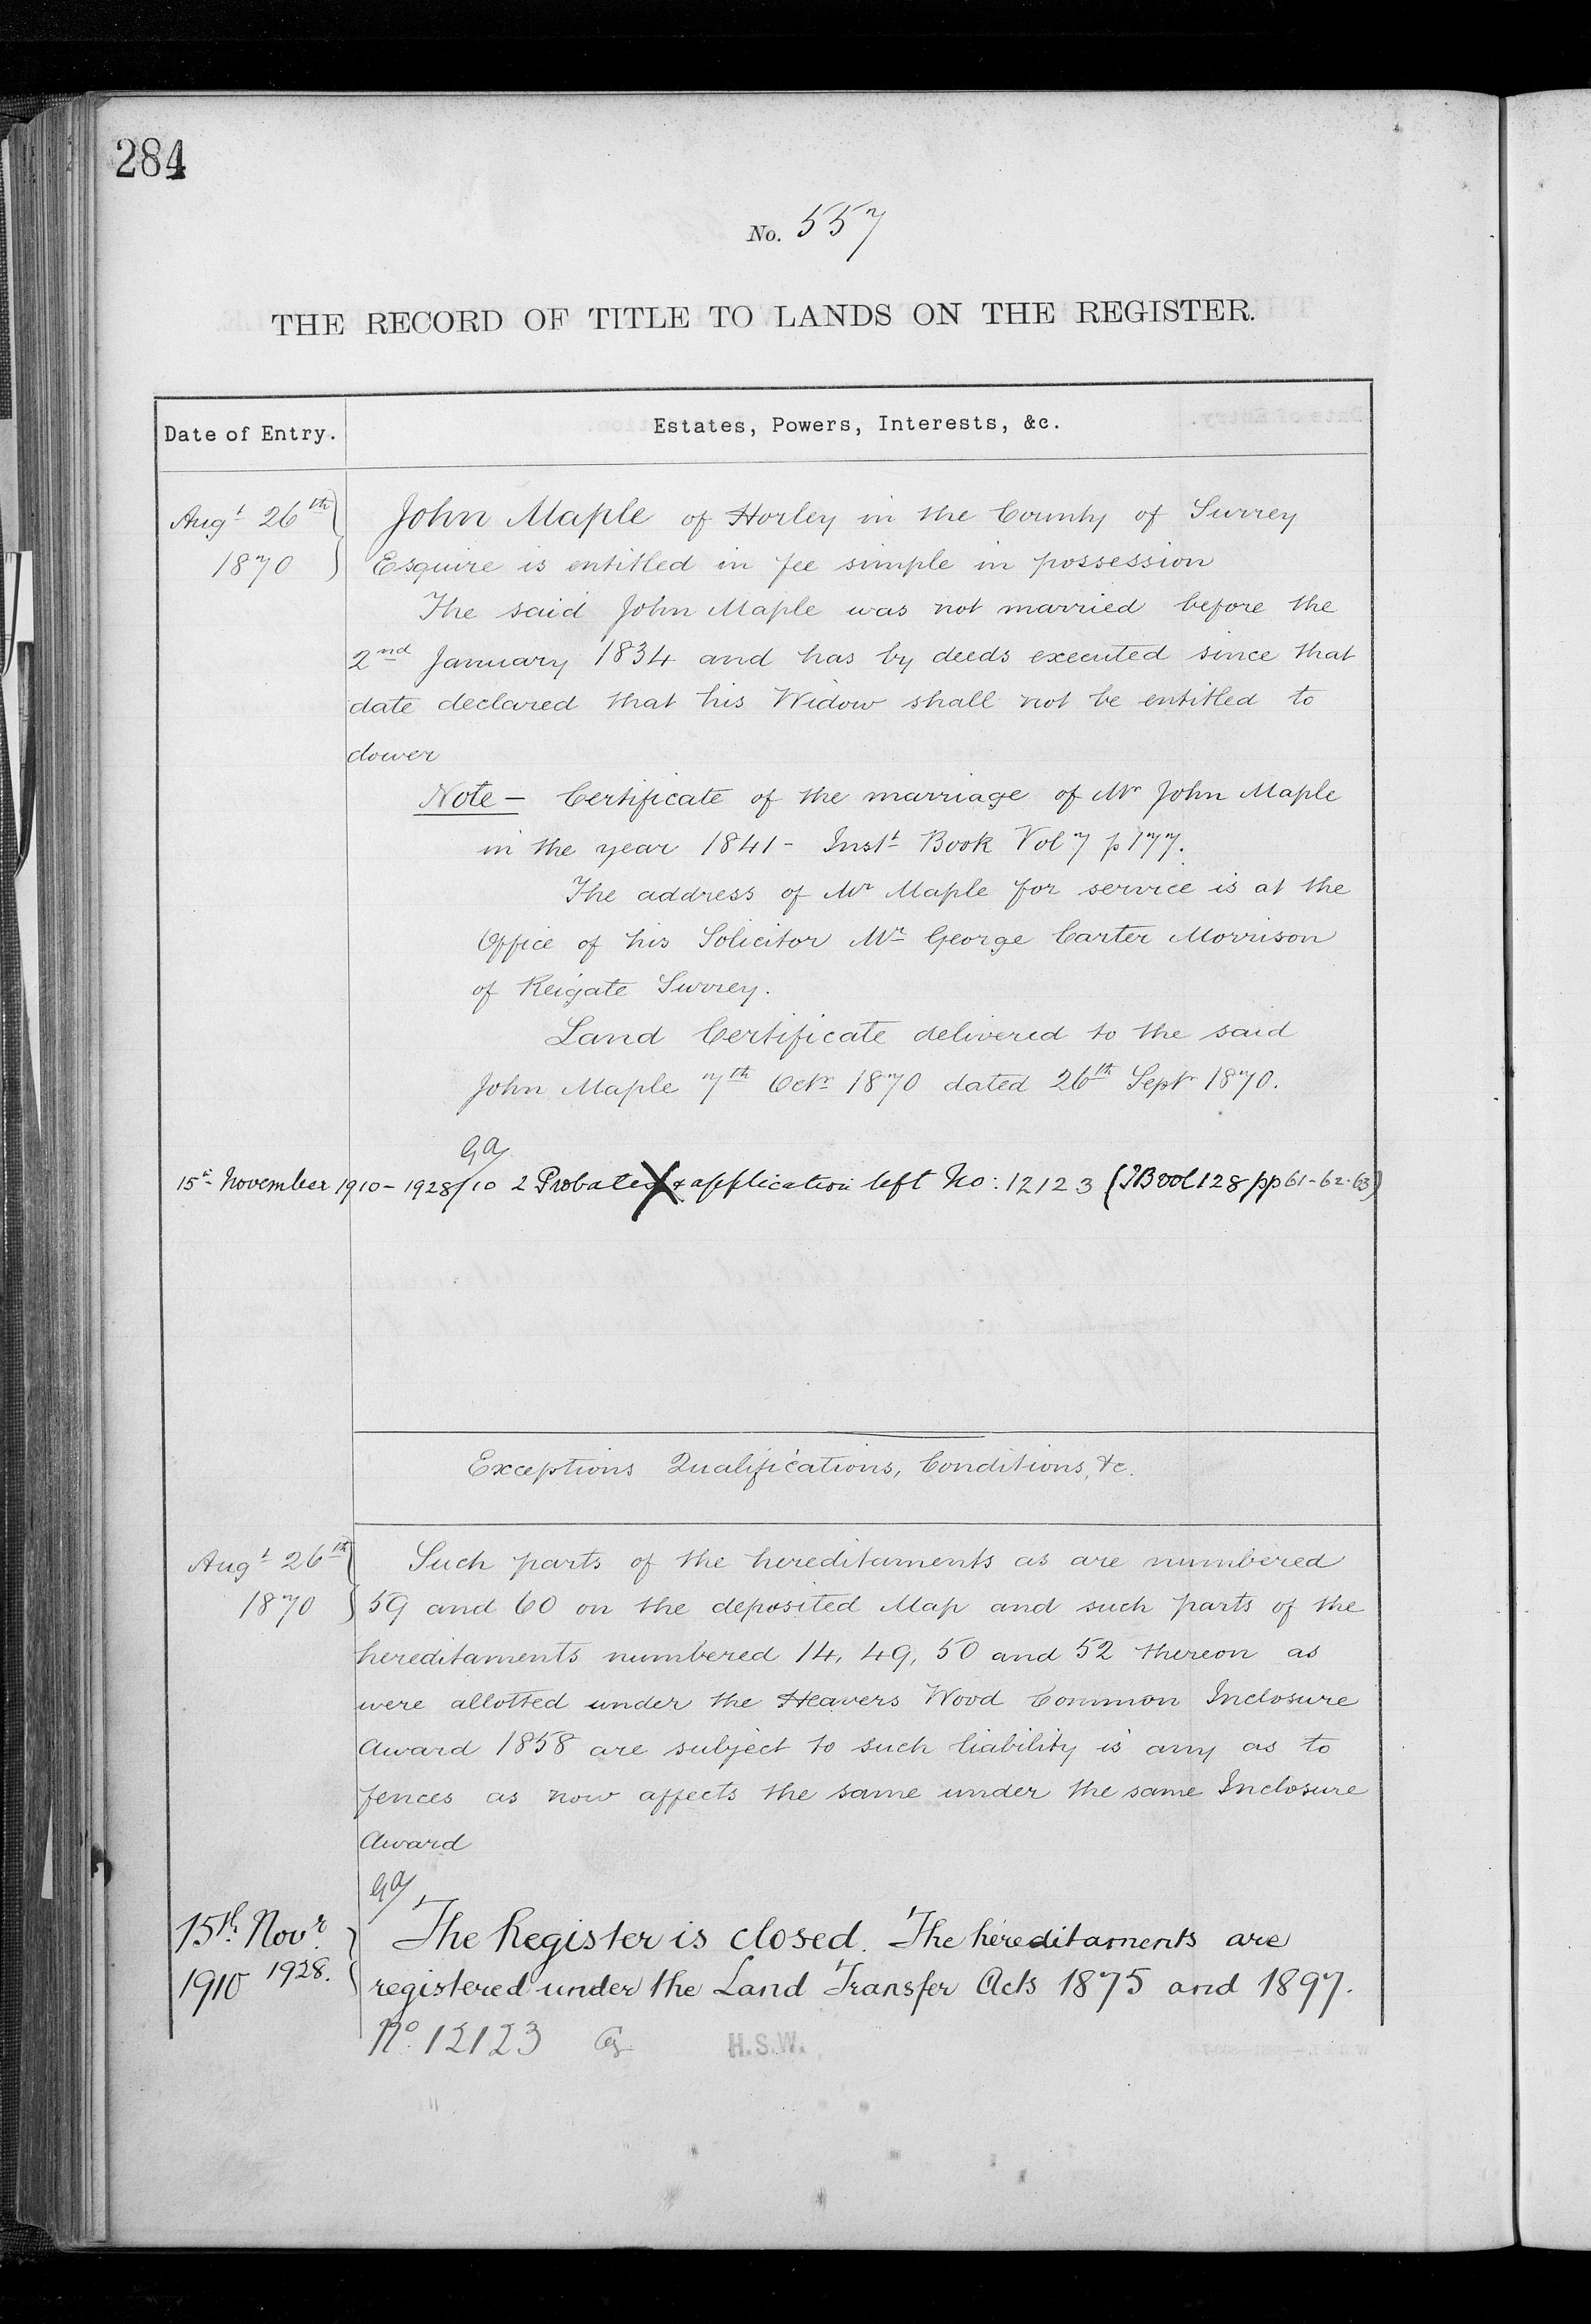 284
No. 557
THE RECORD OF TITLE TO LANDS ON THE REGISTER.
Date of Entry.
Estates, Powers, Interests, &c.
Augt 26th 1870
John Maple of Horley in the County of Surrey
Esquire is entitled in fee simple in possession
The said John Maple was not married before the
2nd January 1834 and has by deeds executed since that
date declared that his Widow shall not be entitled to
dower
Note – Certificate of the marriage of Mr John Maple
in the year 1841 - Inst Book Vol 7 p 177.
The address of Mr Maple for service is at the
Office of his Solicitor Mr George Carter Morrison
of Reigate Surrey.
Land Certificate delivered to the said
John Maple 7th Octr 1870 dated 26th Septr 1870.
15t November 1910 - 1928/10 2 Probates X & application left No: 12123 (IB vol 128 pp 61-62-63)
Exceptions Qualifications, Conditions, &c.
Augt 26th 1870
Such parts of the hereditaments as are numbered
59 and 60 on the deposited Map and such parts of the
hereditaments numbered 14, 49, 50 and 52 thereon as
were allotted under the Heavers Wood Common Inclosure
Award 1858 are subject to such liability is any as to
fences as now affects the same under the same Inclosure
Award
15th Novr 1910 1928.
The Register is closed. The hereditaments are
registered under the Land Transfer Acts 1875 and 1897.
No. 12123 H.S.W.